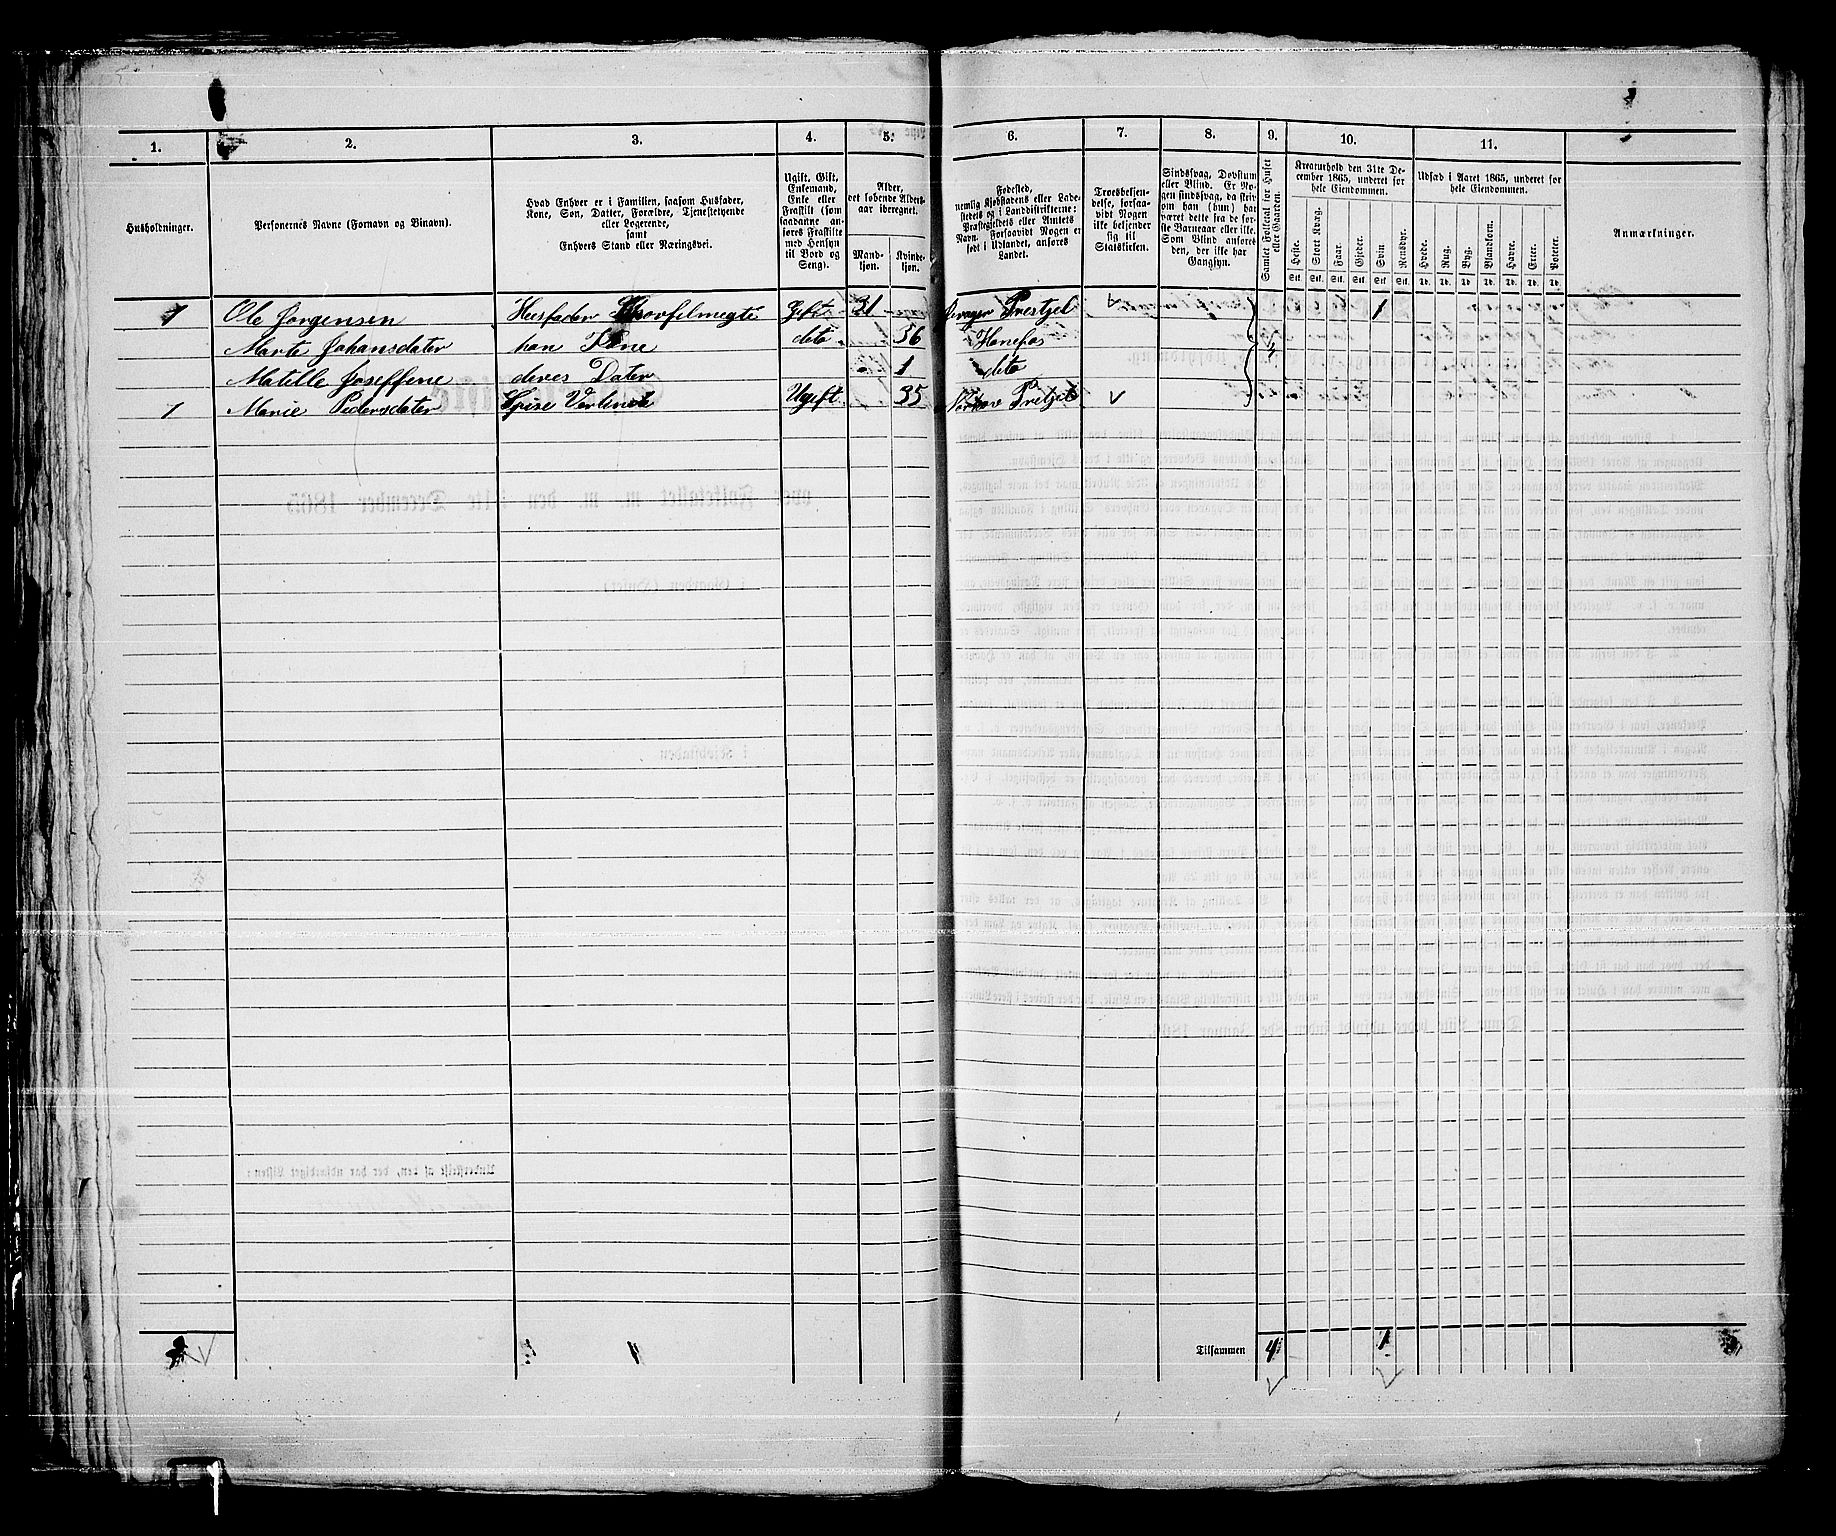 1.
2.
3.
4.
5.
6.
7.
8.
9.
10.
11.
Husholdninger.
Personernes Navne (Fornavn og Binavn).
Hvad Enhver er i Familien, saasom Husfader,
Kone, Søn, Datter, Forældre, Tjenestetyende
eller Logerende,
samt
Enhvers Stand eller Næringsvei.
Ugift, Gift,
Enkemand,
Enke eller
Fraskilt (som
saadanne an-
føres Fraskilte
med Hensyn
til Bord og
Seng).
Alder,
det løbende Alders-
aar iberegnet.
Mand-
kjøn.
Kvinde-
kjøn.
Fødested,
nemlig Kjøbstadens eller Lade-
stedets og i Landdistrikterne:
Præstegjeldets eller Amtets
Navn. Forsaavidt Nogen er
født i Udlandet, anføres
Landet.
Troesbekjen-
delse, forsaa-
vidt Nogen
ikke bekjender
sig til
Statskirken.
Sindssvag, Døvstum
eller Blind. Er No-
gen sindssvag, da skriv
om han (hun) har
været dette fra de før-
ste Barneaar eller ikke.
Som Blind anføres
den, der ikke har
Gangsyn.
Samlet Folketal for Huset
eller Gaarden.
Kreaturhold den 31te De-
cember 1865, underet for
hele Eiendommen.
Heste.
Stort Kvæg.
Faar.
Gjeder.
Svin
Rensdyr.
Stk. Stk. Stk. Stk. Stk. Stk.
Udsæd i Aaret 1865, underet for
hele Eiendommen.
Hvede.
Rug.
Byg.
Blandkorn.
Havre.
Erter.
Poteter.
Td. Td. Td. Td. Td. Td. Td.
Anmærkninger.
1 Ole Jørgensen Husfader Skovfulmegte Gift 31 Prestjel 1
Marte Johansdater han Kone dito 36 Hønefos
Matille Joseffene deres Dater 1 dito
1 Marie Pedersdater Ugift 35 Pretjel
Tilsammen 4 1